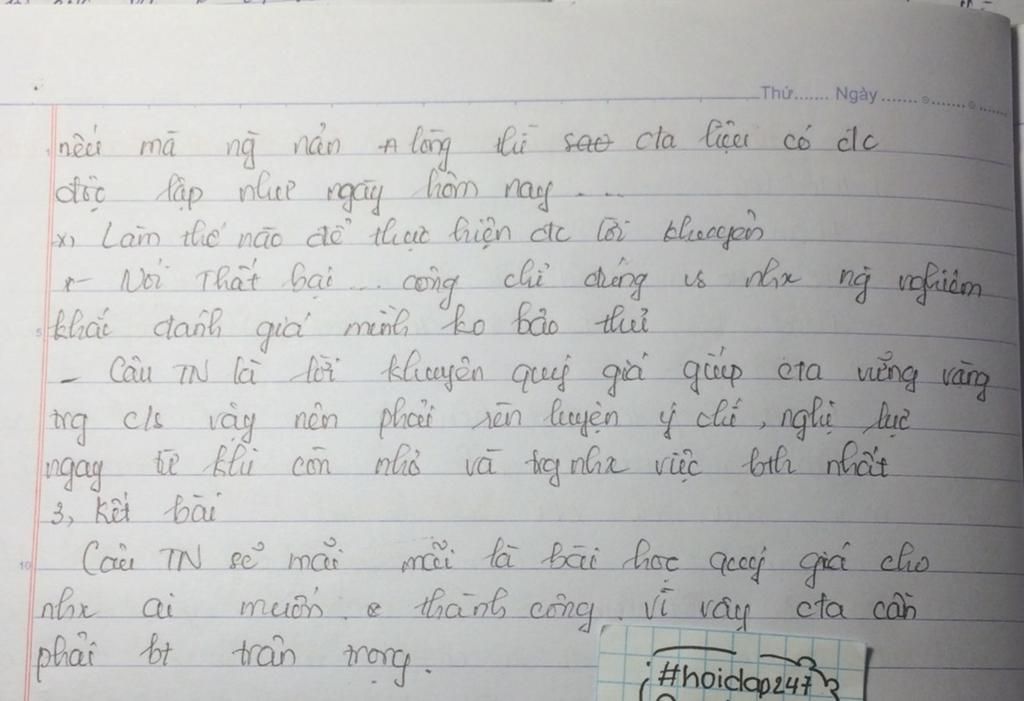 Thứ....... Ngày..................
nếu mà ng nản lòng thì sao cta liệu có đc
độc lập như ngày hôm nay ....
x, Làm thế nào để thực hiện đc lời khuyên
+- Nói Thất bại ... công chỉ đúng vs nhx ng nghiêm
khắc đánh giá mình ko bảo thủ
- Câu TN là lời khuyên quý giá giúp cta vững vàng
trg c/s vậy nên phải rèn luyện ý chí, nghị lực
ngay từ khi còn nhỏ và trg nhx việc bth nhất
3, Kết bài
Câu TN sẽ mãi mãi là bài học quý giá cho
nhx ai muốn thành công. Vì vậy cta cần
phải bt trân trọng.
#hoidap247